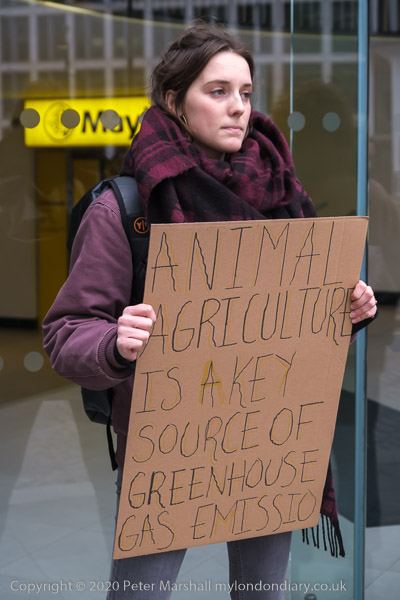 May
ANIMAL
AGRICULTURE
IS A KEY
SOURCE OF
GREENHOUSE
GAS EMISSIO
Copyright © 2020 Peter Marshall mylondondiary.co.uk